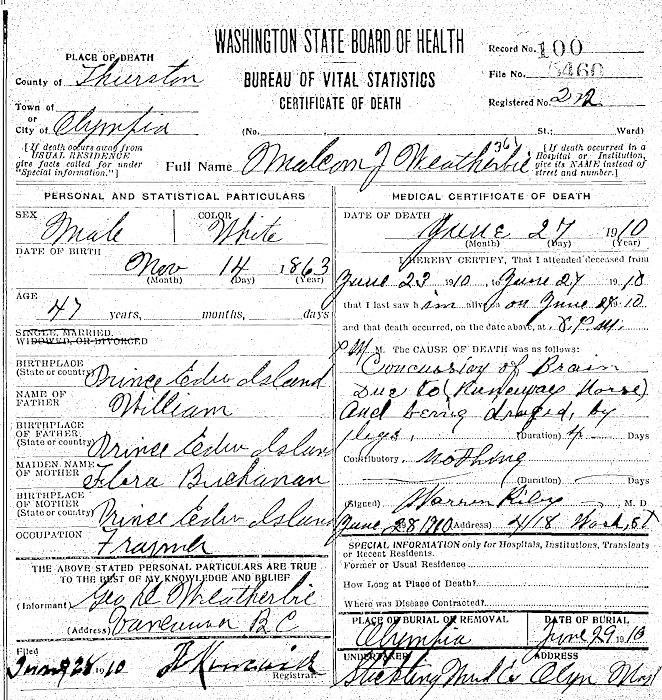 WASHINGTON STATE BOARD OF HEALTH
BUREAU OF VITAL STATISTICS
CERTIFICATE OF DEATH
Record No. 100
File No. 5460
Registered No. 22
PLACE OF DEATH
County of Thurston
Town of
or
City of Olympia
(No. St.; Ward)
[If death occurs away from
USUAL RESIDENCE
give facts called for under
"Special information."]
Full Name Malcom J Weatherbie
[If death occurred in a
Hospital or Institution,
give its NAME instead of
street and number.]
PERSONAL AND STATISTICAL PARTICULARS
SEX Male
COLOR White
DATE OF BIRTH
Nov 14 1863
(Month) (Day) (Year)
AGE
47 years, months, days
SINGLE, MARRIED,
WIDOWED, OR DIVORCED
BIRTHPLACE
(State or country) Prince Edw Island
NAME OF
FATHER William
BIRTHPLACE
OF FATHER
(State or country) Prince Edw Island
MAIDEN NAME
OF MOTHER Flora Buchanan
BIRTHPLACE
OF MOTHER
(State or country) Prince Edw Island
OCCUPATION
THE ABOVE STATED PERSONAL PARTICULARS ARE TRUE
TO THE BEST OF MY KNOWLEDGE AND BELIEF
(Informant) Geo D Weatherbie
(Address) Vancouver B C
Filed
June 28 1910
Registrar.
MEDICAL CERTIFICATE OF DEATH
DATE OF DEATH
June 27 1910
(Month) (Day) (Year)
I HEREBY CERTIFY, That I attended deceased from
June 23 1910, to June 27 1910
that I last saw him alive on June 10
and that death occurred, on the date above, at 8 P.M.
P M M. The CAUSE OF DEATH was as follows:
Concussion of Brain
Due to (Runaway Horse)
And being draged, by
legs. (Duration) 4 Days
Contributory nothing
(Duration) Days
(Signed) Warren Riley M. D
June 28 1910 (Address) 418 Wash, St
SPECIAL INFORMATION only for Hospitals, Institutions, Transients
or Recent Residents.
Former or Usual Residence
How Long at Place of Death?
Where was Disease Contracted?
PLACE OF BURIAL OR REMOVAL
Olympia
DATE OF BURIAL
June 29 1910
UNDERTAKER
ADDRESS